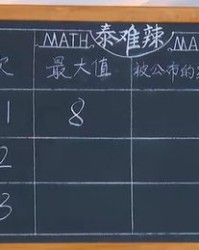 MATH 泰难辣 MA
次 最大值 被公布的
1 8
2
3